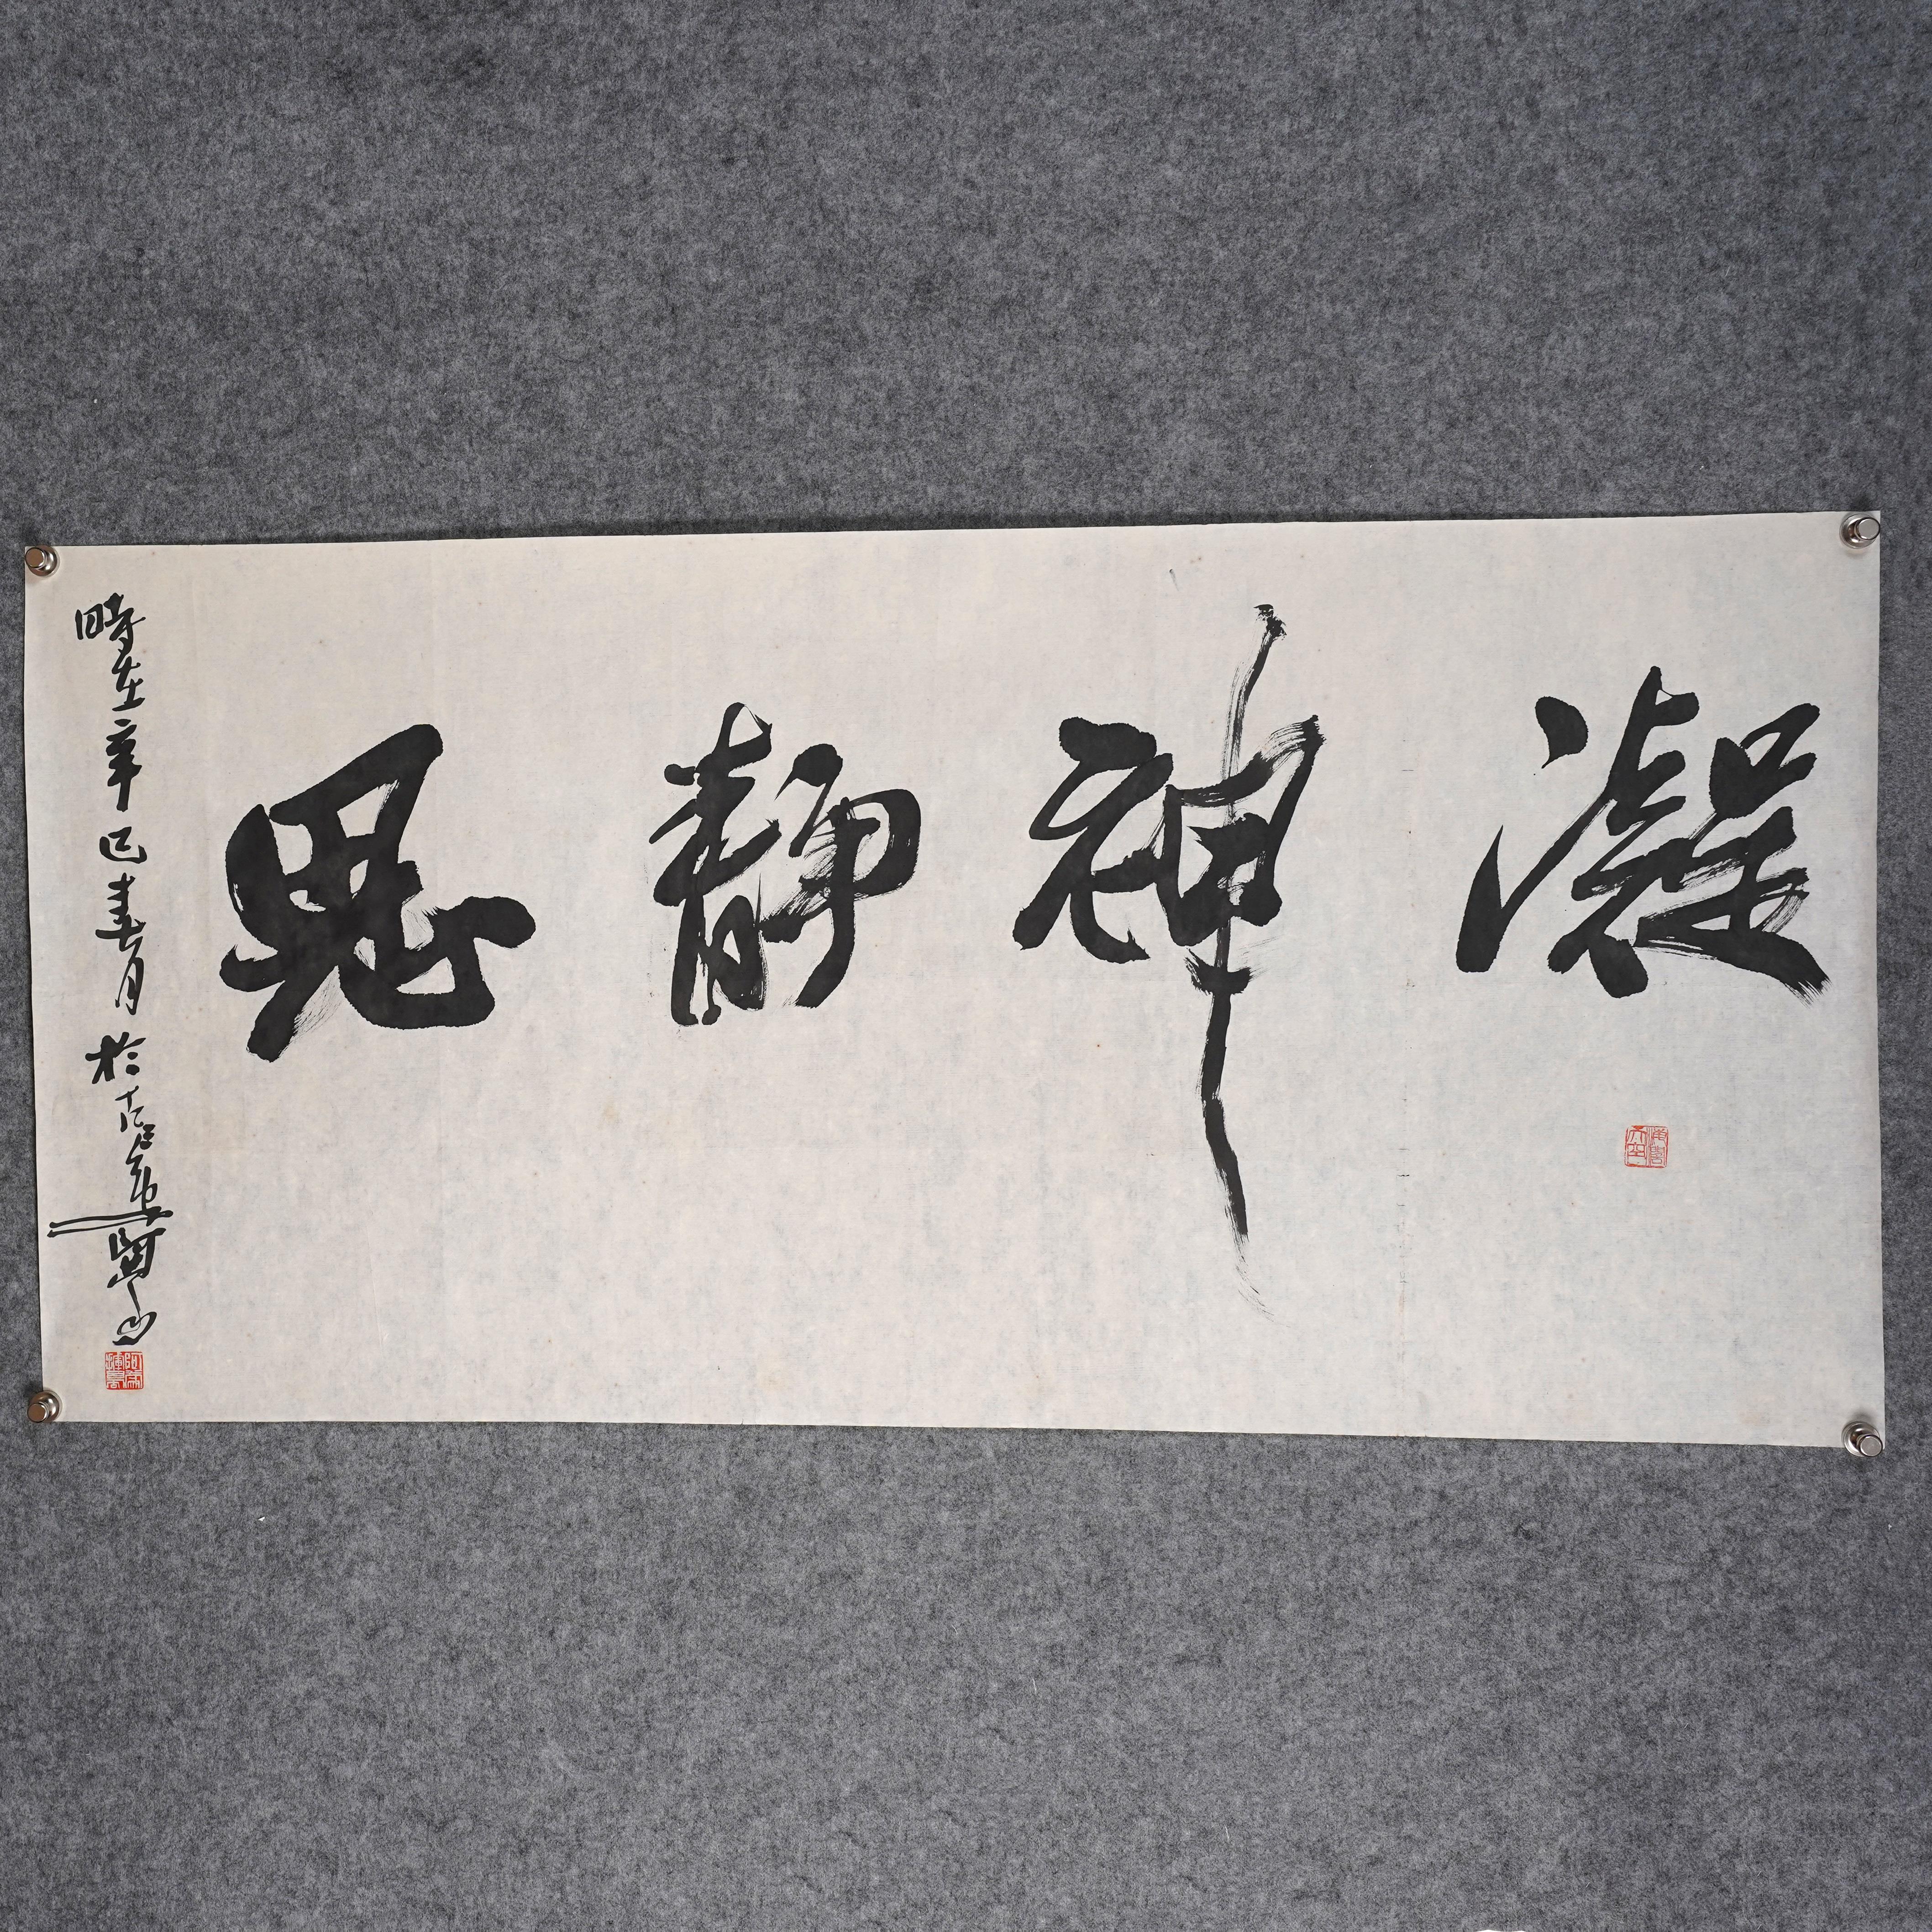 凝神靜思
時在辛巳春月於